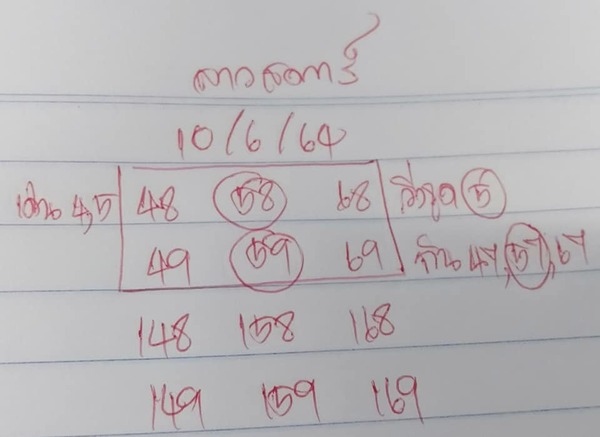 ลาวสตาร์
10/6/64
เด่น 4,5 48 58 68 วิ่งรูด 5
49 59 69 กัน 47, 57, 67
148 158 168
149 159 169